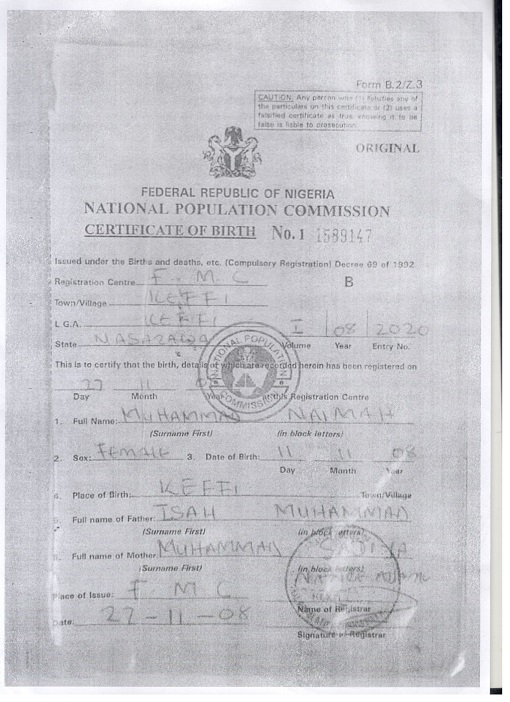 Form B.2/Z.3
CAUTION: Any person who (1) falsifies any of
the particulars on this certificate or (2) uses a
falsified certificate as true, knowing it to be
false is liable to prosecution.
ORIGINAL
FEDERAL REPUBLIC OF NIGERIA
NATIONAL POPULATION COMMISSION
CERTIFICATE OF BIRTH No. 1 1589147
Issued under the Births and deaths, etc. (Compulsory Registration) Decree 69 of 1992
Registration Centre F. M. C B
Town/Village KEFFI
L.G.A. KEFFI I 08 2020
State NASARAWA Volume Year Entry No.
This is to certify that the birth, details of which are recorded herein has been registered on
27 11
Day Month Year at this Registration Centre
1. Full Name: MUHAMMAD NAIMAH
(Surname First) (in block letters)
2. Sex: FEMALE 3. Date of Birth: 11 11 08
Day Month Year
4. Place of Birth: KEFFI Town/Village
Full name of Father ISAH MUHAMMAD
(Surname First) (in block letters)
Full name of Mother MUHAMMAD
(Surname First) (in block letters)
Place of Issue: F M C
Name of Registrar
Date: 27-11-08
Signature of Registrar
NATIONAL POPULATION
COMMISSION